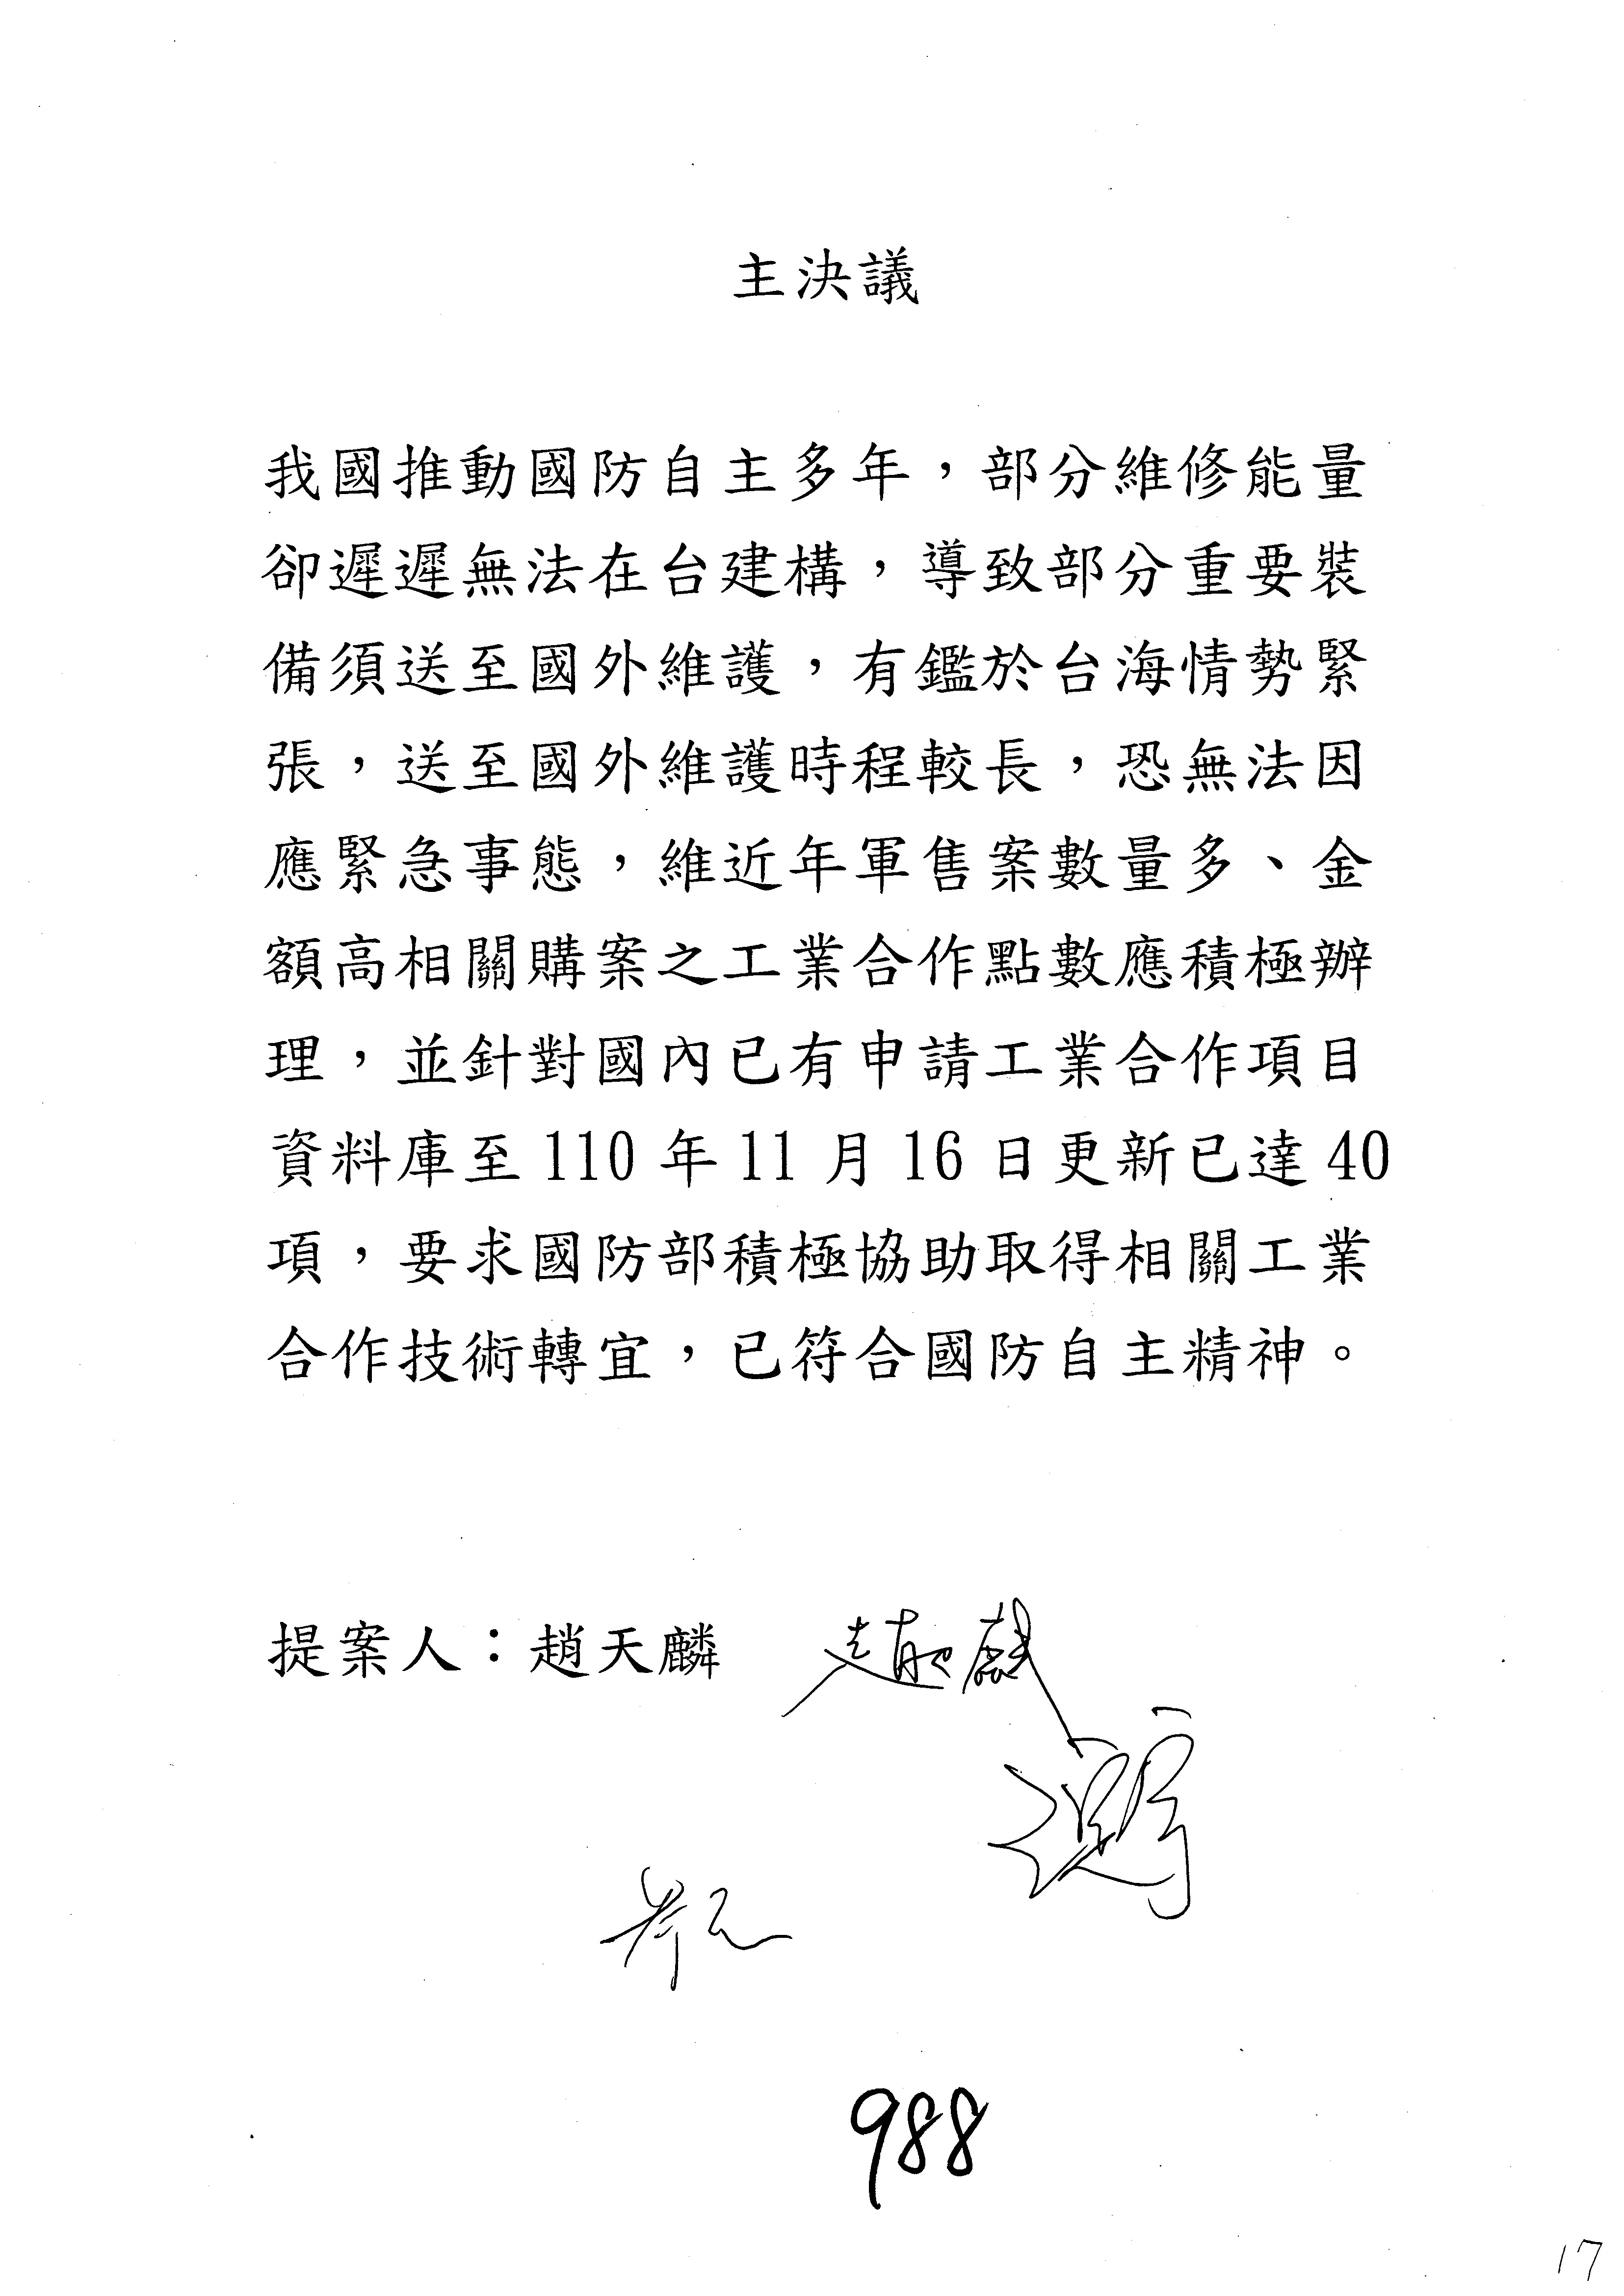 主決議
我國推動國防自主多年，部分維修能量
卻遲遲無法在台建構，導致部分重要裝
備須送至國外維護，有鑑於台海情勢緊
張，送至國外維護時程較長，恐無法因
應緊急事態，維近年軍售案數量多、金
額高相關購案之工業合作點數應積極辦
理，並針對國內已有申請工業合作項目
資料庫至110年11月16日更新已達40
項，要求國防部積極協助取得相關工業
合作技術轉宜，已符合國防自主精神。
提案人：趙天麟 趙天麟
988
17